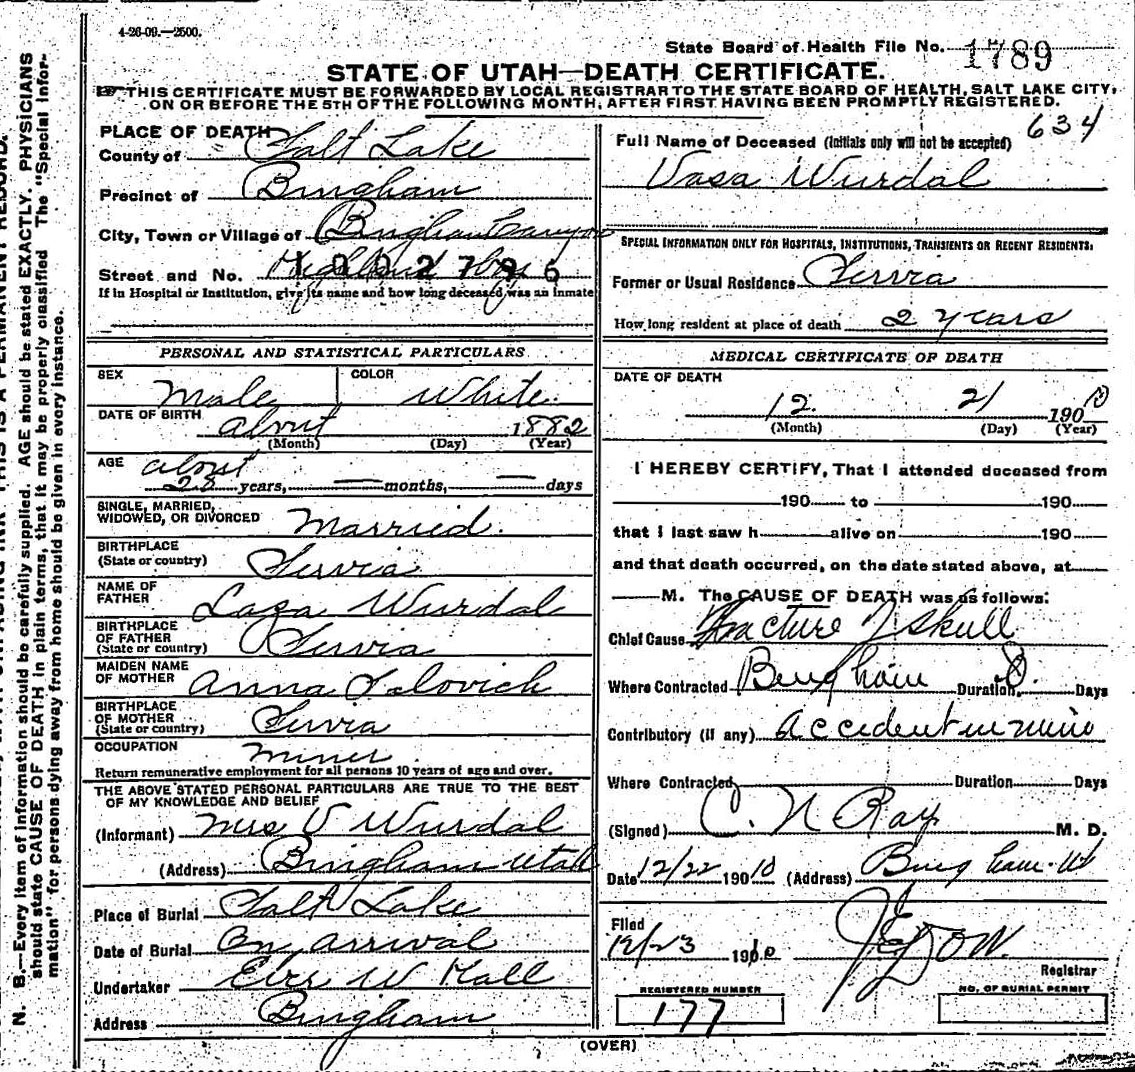 4-26-09.—2500.
State Board of Health File No. 1789
STATE OF UTAH—DEATH CERTIFICATE.
THIS CERTIFICATE MUST BE FORWARDED BY LOCAL REGISTRAR TO THE STATE BOARD OF HEALTH, SALT LAKE CITY,
ON OR BEFORE THE 5TH OF THE FOLLOWING MONTH, AFTER FIRST HAVING BEEN PROMPTLY REGISTERED.
634
N. B.—Every item of information should be carefully supplied. AGE should be stated EXACTLY. PHYSICIANS
should state CAUSE OF DEATH in plain terms, that it may be properly classified. The "Special Infor-
mation" for persons dying away from home should be given in every instance.
PLACE OF DEATH
County of Salt Lake
Precinct of Bingham
City, Town or Village of Bingham Canyon
Street and No. Highland Boy
If in Hospital or Institution, give its name and how long deceased was an inmate
PERSONAL AND STATISTICAL PARTICULARS
SEX Male COLOR White
DATE OF BIRTH about 1882
(Month) (Day) (Year)
AGE about
28 years, — months, — days
SINGLE, MARRIED,
WIDOWED, OR DIVORCED Married.
BIRTHPLACE
(State or country) Servia
NAME OF
FATHER Laza Wurdal
BIRTHPLACE
OF FATHER
(State or country) Servia
MAIDEN NAME
OF MOTHER Anna
BIRTHPLACE
OF MOTHER
(State or country) Servia
OCCUPATION Miner
Return remunerative employment for all persons 10 years of age and over.
THE ABOVE STATED PERSONAL PARTICULARS ARE TRUE TO THE BEST
OF MY KNOWLEDGE AND BELIEF
(Informant) Mrs V Wurdal
(Address) Bingham Utah
Place of Burial Salt Lake
Date of Burial On arrival
Undertaker W Hall
Address Bingham
Full Name of Deceased (Initials only will not be accepted)
Vasa Wurdal
SPECIAL INFORMATION ONLY FOR HOSPITALS, INSTITUTIONS, TRANSIENTS OR RECENT RESIDENTS:
Former or Usual Residence Servia
How long resident at place of death 2 years
MEDICAL CERTIFICATE OF DEATH
DATE OF DEATH
12 21 1900 10
(Month) (Day) (Year)
I HEREBY CERTIFY, That I attended deceased from
190 to 190
that I last saw h alive on 190
and that death occurred, on the date stated above, at
M. The CAUSE OF DEATH was as follows:
Chief Cause Fracture of skull
Where Contracted Bingham Duration Days
Contributory (if any) accident in mine
Where Contracted Duration Days
(Signed) C. N Ray M. D.
Date 12/22 1910 (Address) Bingham Ut
Filed
12/23 1910
Registrar
REGISTERED NUMBER
177
NO. OF BURIAL PERMIT
(OVER)